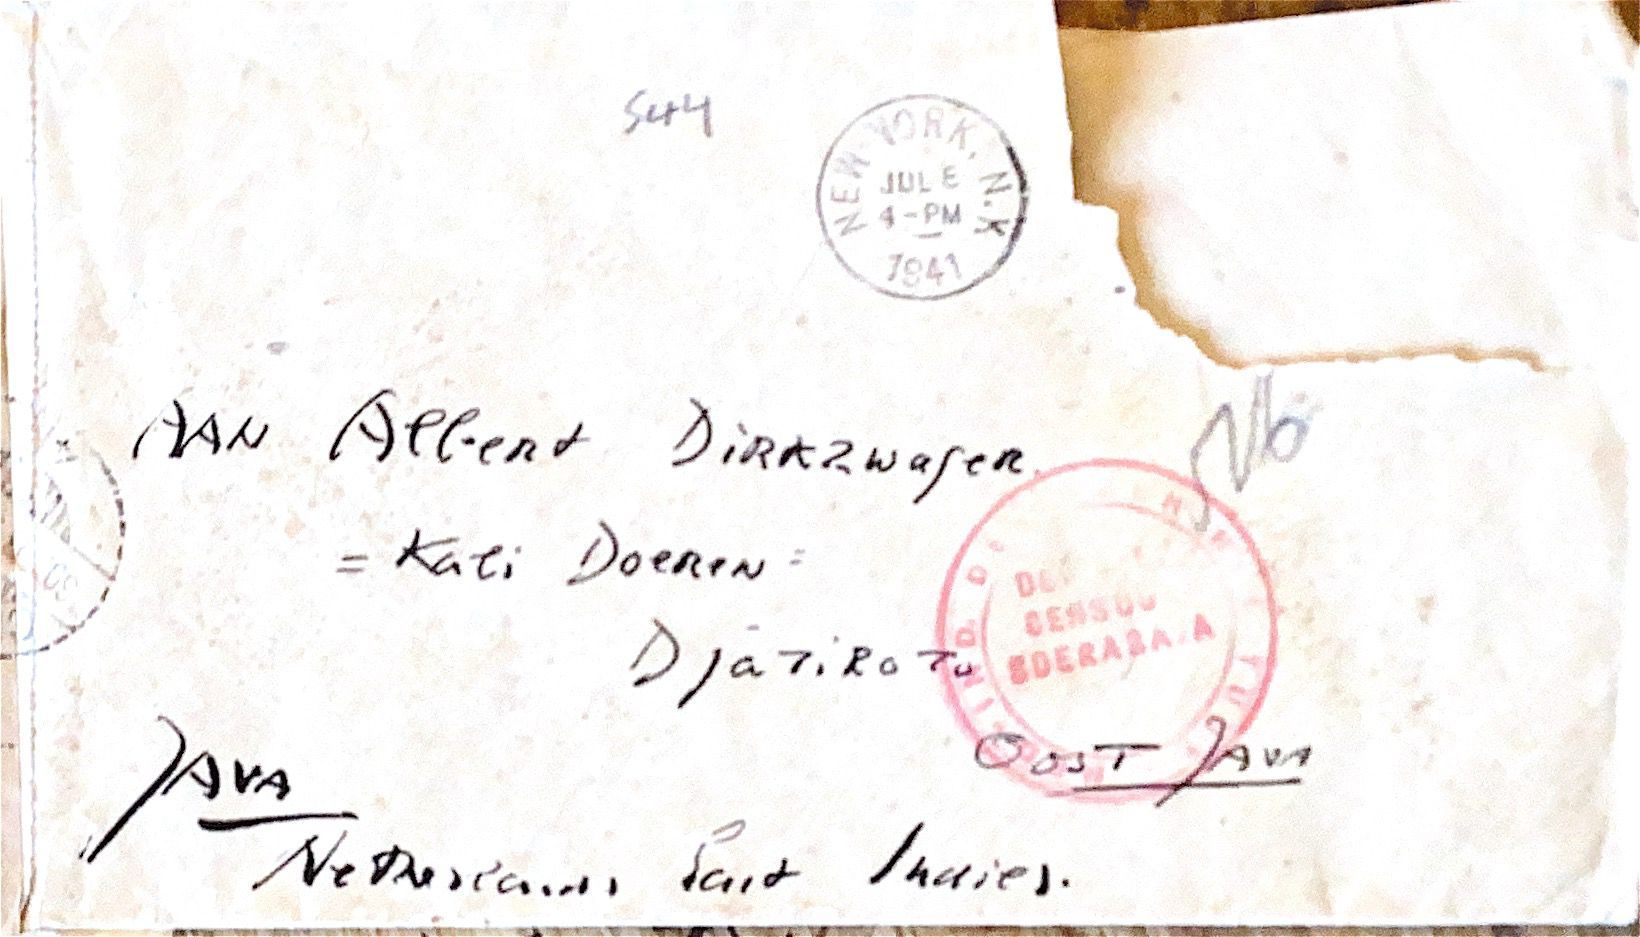 544
NEW YORK, N.Y.
JUL
4-PM
1941
AAN Albert Dirkzwager
= Kali Doeren =
Djatiroto
OOST JAVA
JAVA
Netherlands East Indies.